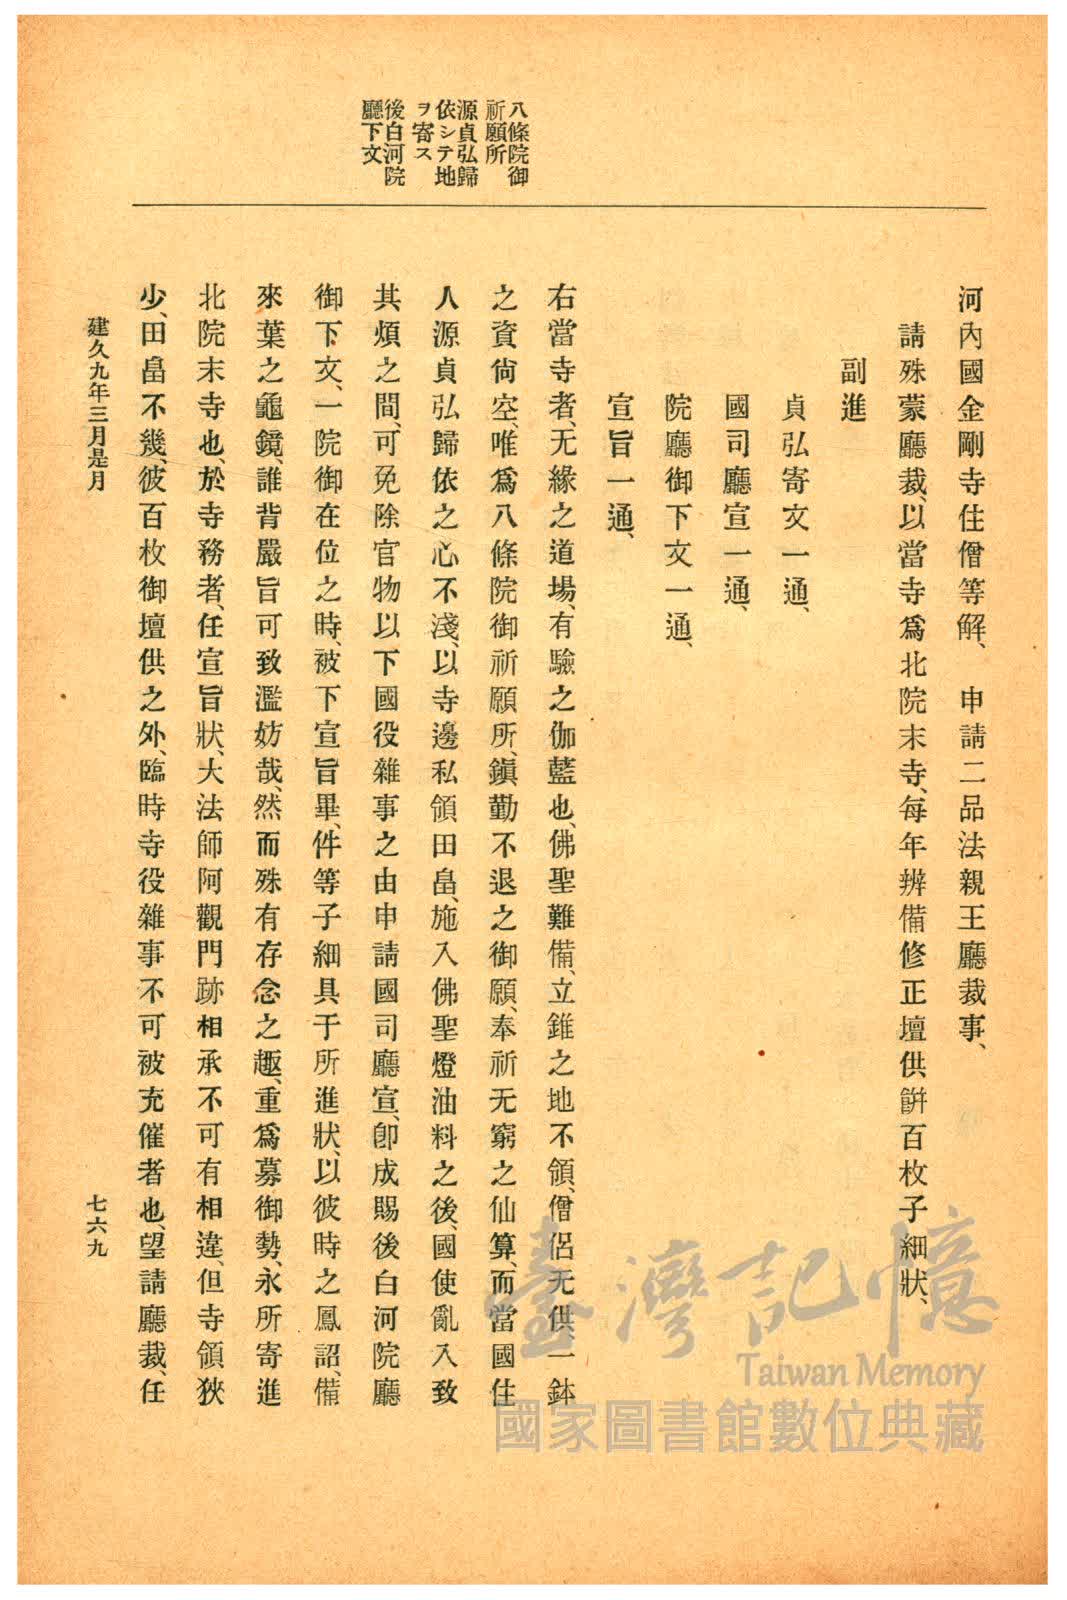 八條院御
祈願所
源貞弘歸
依シテ地
ヲ寄ス
後白河院
廳下文
河內國金剛寺住僧等解、　申請二品法親王廳裁事、
請殊蒙廳裁、以當寺爲北院末寺、每年辨備修正壇供餠百枚子細狀、
副進
貞弘寄文一通、
國司廳宣一通、
院廳御下文一通、
宣旨一通、
右當寺者、无緣之道場、有驗之伽藍也、佛聖難備、立錐之地不領、僧侶无供、一鉢
之資尙空、唯爲八條院御祈願所、鎭勤不退之御願、奉祈无窮之仙算、而當國住
人源貞弘歸依之心不淺、以寺邊私領田畠、施入佛聖燈油料之後、國使亂入致
其煩之間、可免除官物以下國役雜事之由申請國司廳宣、卽成賜後白河院廳
御下文、一院御在位之時、被下宣旨畢、件等子細具于所進狀、以彼時之鳳詔、備
來葉之龜鏡、誰背嚴旨可致濫妨哉、然而殊有存念之趣、重爲募御勢、永所寄進
北院末寺也、於寺務者、任宣旨狀、大法師阿觀門跡相承不可有相違、但寺領狹
少、田畠不幾、彼百枚御壇供之外、臨時寺役雜事不可被充催者也、望請廳裁、任
建久九年三月是月
七六九
臺灣記憶
Taiwan Memory
國家圖書館數位典藏